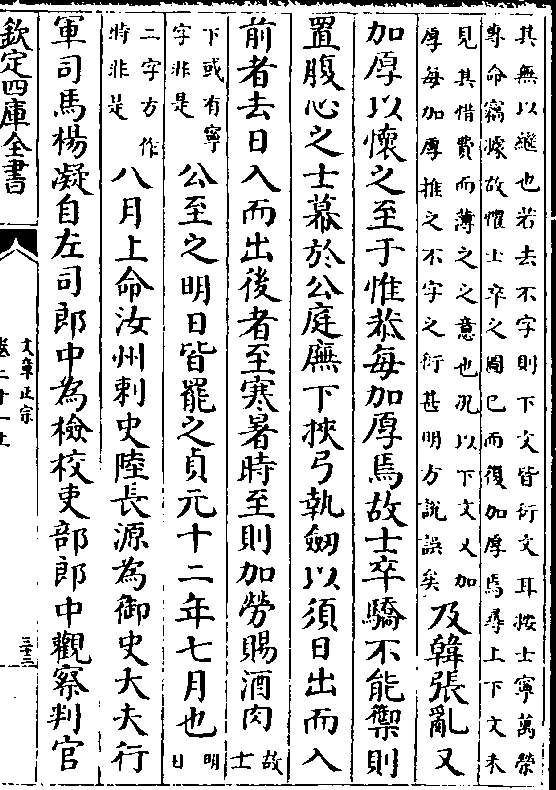 其無以繼也若去不字則下文皆衍文耳按士寧萬榮
尊命竊據故懼士卒之圖己而復加厚焉尋上下文未
見其惜費而薄之之意也況以下文又加
厚每加厚推之不字之衍甚明方說誤矣
及韓張亂又
加厚以懷之至于惟恭每加厚焉故士卒驕不能禦則
置腹心之士幕於公庭廡下挾弓執劒以須日出而入
前者去日入而出後者至寒暑時至則加勞賜酒肉
故
士
下或有寧
字非是
公至之明日皆罷之貞元十二年七月也
明
日
二字方作
時非是
八月上命汝州刺史陸長源為御史大夫行
軍司馬楊凝自左司郎中為檢校吏部郎中觀察判官
欽定四庫全書
文章正宗
卷二十一上
三十三